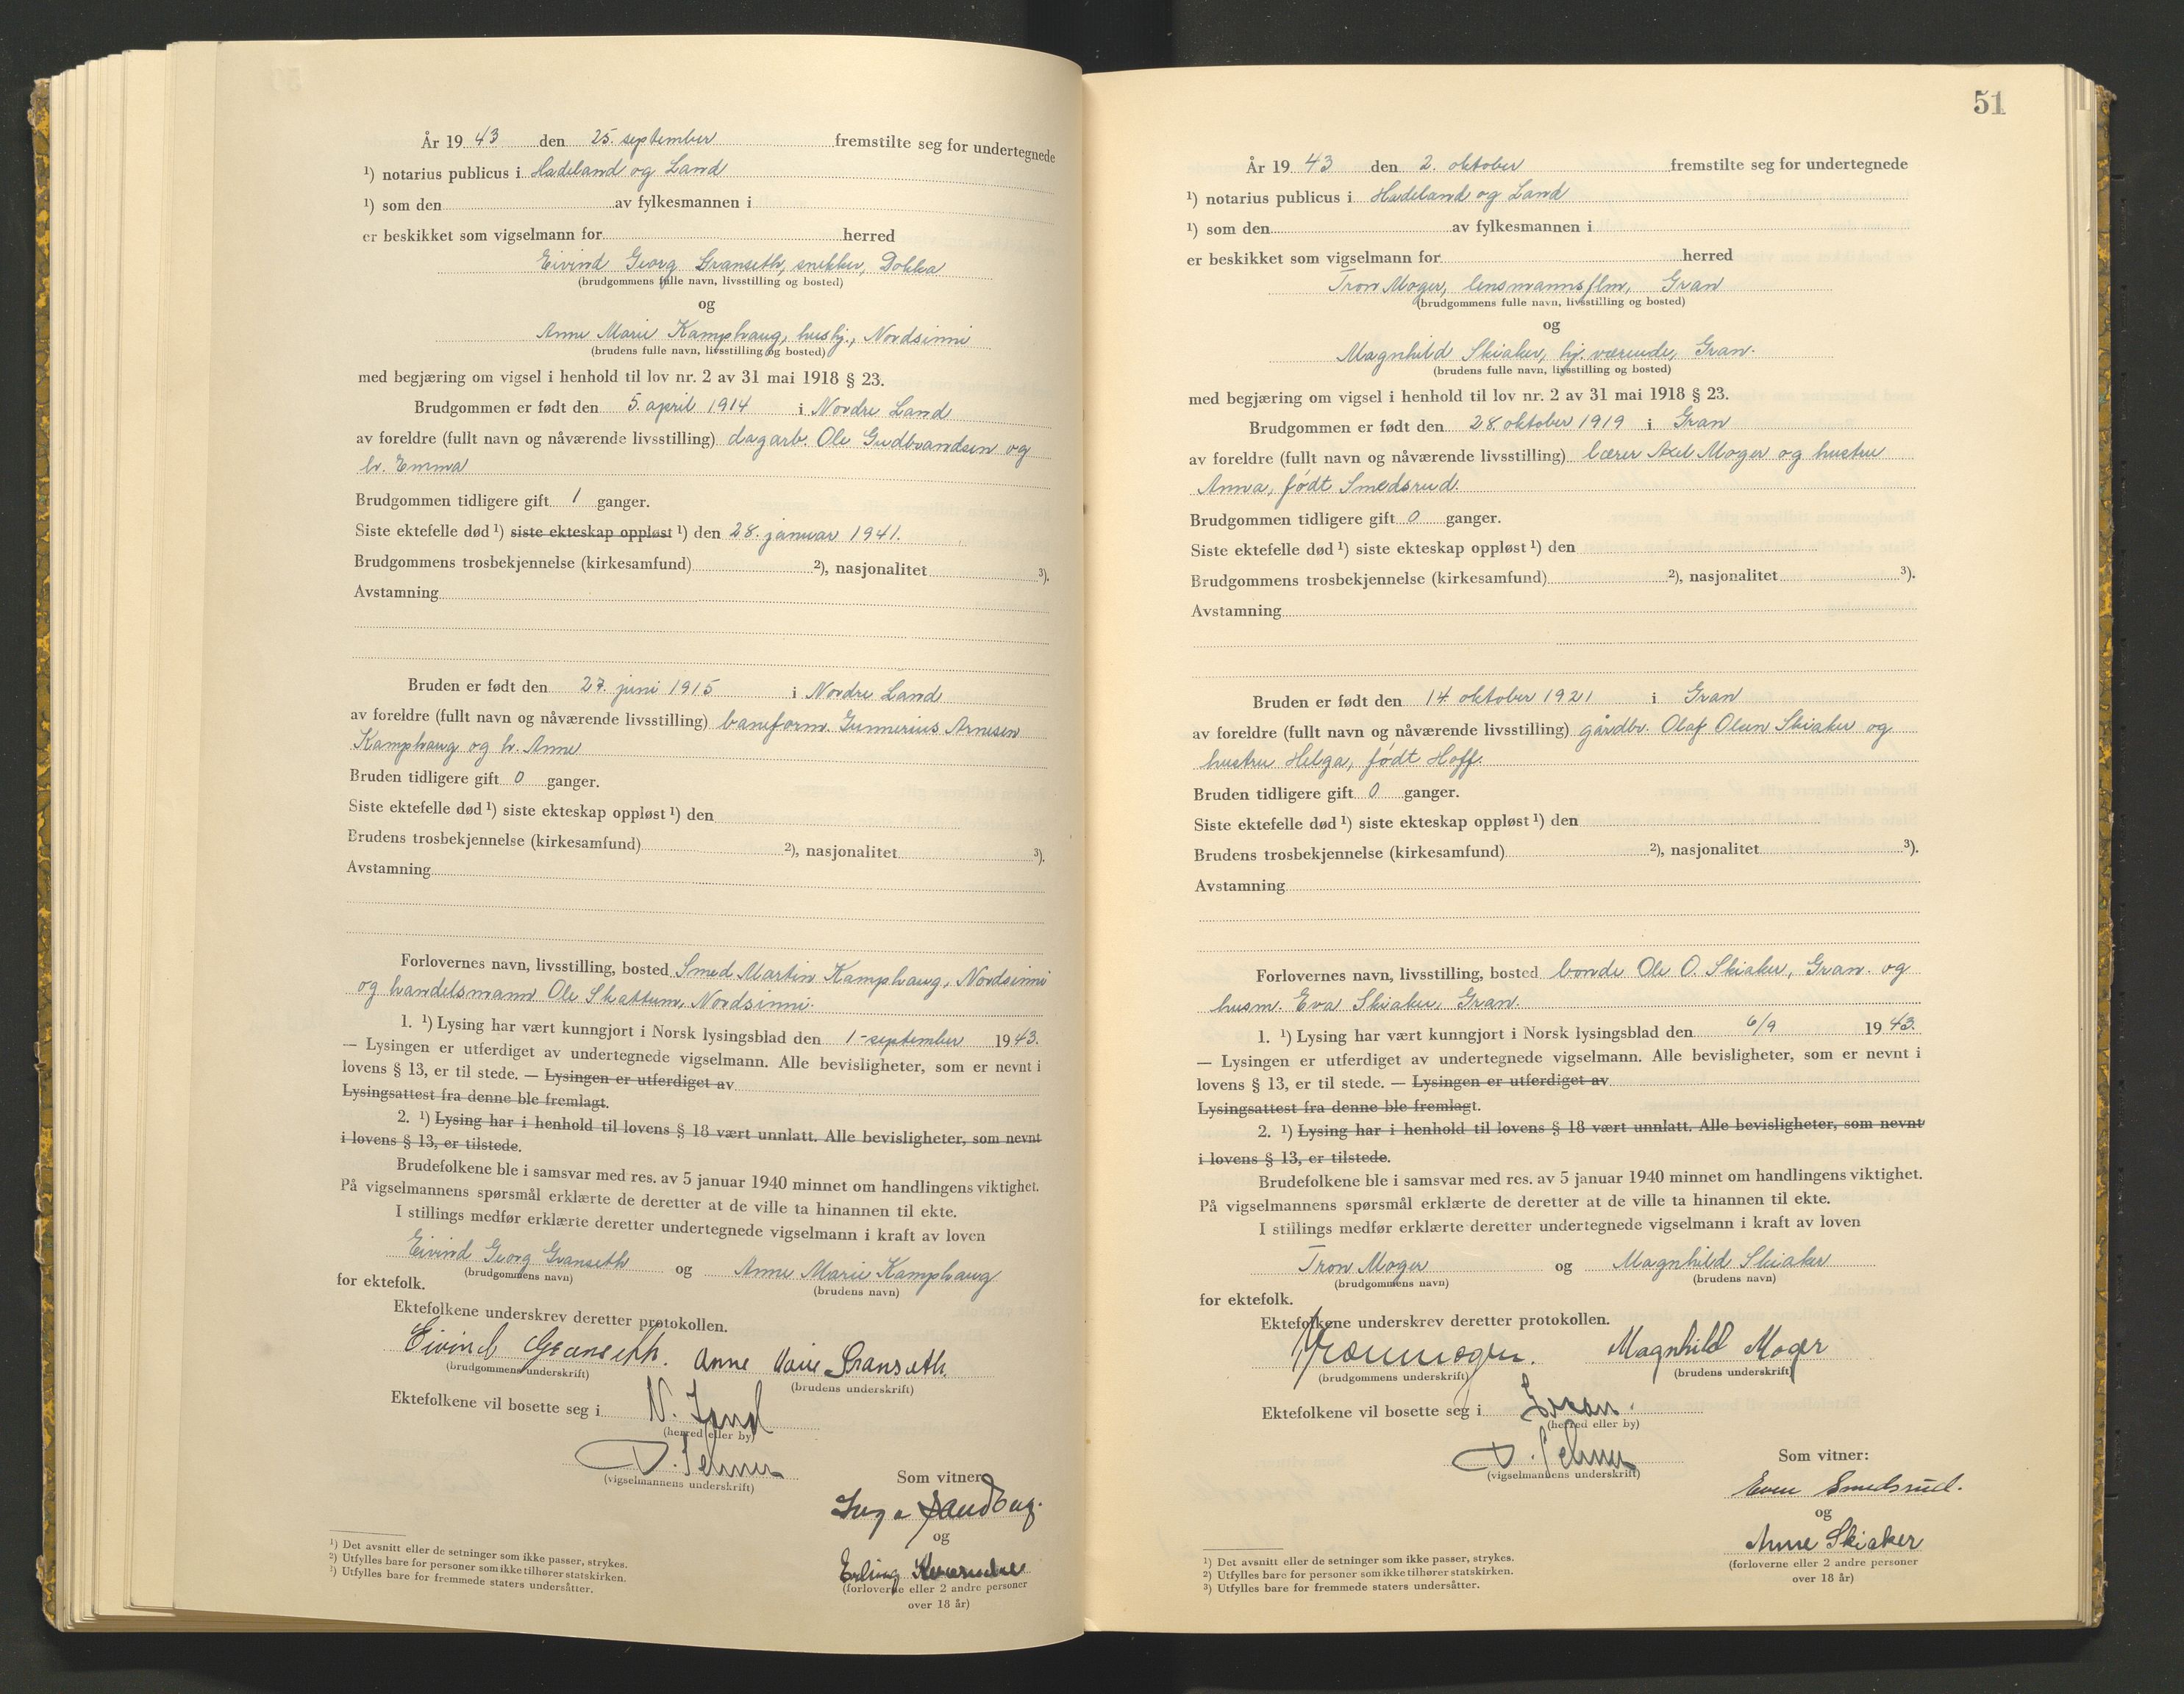 År 1943 den 25. september fremstilte seg for undertegnede
¹) notarius publicus i Hadeland og Land
¹) som den av fylkesmannen i
er beskikket som vigselmann for herred
Eivind Georg Granseth, snekker, Dokka
(brudgommens fulle navn, livsstilling og bosted)
og
Anne Marie Kamphaug, hushj., Nordsinni
(brudens fulle navn, livsstilling og bosted)
med begjæring om vigsel i henhold til lov nr. 2 av 31 mai 1918 § 23.
Brudgommen er født den 5. april 1914 i Nordre Land
av foreldre (fullt navn og nåværende livsstilling) dagarb. Ole Gudbrandsen og
h. Emma
Brudgommen tidligere gift 1 ganger.
Siste ektefelle død ¹) siste ekteskap oppløst ¹) den 28. januar 1941.
Brudgommens trosbekjennelse (kirkesamfund) ²), nasjonalitet ³).
Avstamning
Bruden er født den 27. juni 1915 i Nordre Land
av foreldre (fullt navn og nåværende livsstilling) baneform. Gunnerius Arnesen
Kamphaug og h. Anne
Bruden tidligere gift 0 ganger.
Siste ektefelle død ¹) siste ekteskap oppløst ¹) den
Brudens trosbekjennelse (kirkesamfund) ²), nasjonalitet ³).
Avstamning
Forlovernes navn, livsstilling, bosted Smed Martin Kamphaug, Nordsinni
og handelsmann Ole Skattum, Nordsinni.
1. ¹) Lysing har vært kunngjort i Norsk lysingsblad den 1-september 1943.
— Lysingen er utferdiget av undertegnede vigselmann. Alle bevisligheter, som er nevnt i
lovens § 13, er til stede. — Lysingen er utferdiget av
Lysingsattest fra denne ble fremlagt.
2. ¹) Lysing har i henhold til lovens § 18 vært unnlatt. Alle bevisligheter, som nevnt
i lovens § 13, er tilstede.
Brudefolkene ble i samsvar med res. av 5 januar 1940 minnet om handlingens viktighet.
På vigselmannens spørsmål erklærte de deretter at de ville ta hinannen til ekte.
I stillings medfør erklærte deretter undertegnede vigselmann i kraft av loven
Eivind Georg Granseth og Anne Marie Kamphaug
(brudgommens navn) (brudens navn)
for ektefolk.
Ektefolkene underskrev deretter protokollen.
Eivind Granseth. Anne Marie Granseth.
(brudgommens underskrift) (brudens underskrift)
Ektefolkene vil bosette seg i N. Land
(herred eller by)
(vigselmannens underskrift)
Som vitner
Inga Sandberg.
og
Erling
(forloverne eller 2 andre personer
over 18 år)
¹) Det avsnitt eller de setninger som ikke passer, strykes.
²) Utfylles bare for personer som ikke tilhører statskirken.
³) Utfylles bare for fremmede staters undersåtter.
51
År 1943 den 2. oktober fremstilte seg for undertegnede
¹) notarius publicus i Hadeland og Land
¹) som den av fylkesmannen i
er beskikket som vigselmann for herred
Tron Moger, lensmannsflm, Gran
(brudgommens fulle navn, livsstilling og bosted)
og
Magnhild Skiaker, hj. værende, Gran.
(brudens fulle navn, livsstilling og bosted)
med begjæring om vigsel i henhold til lov nr. 2 av 31 mai 1918 § 23.
Brudgommen er født den 28. oktober 1919 i Gran
av foreldre (fullt navn og nåværende livsstilling) lærer Axel Moger og hustru
Anna, født Smedsrud.
Brudgommen tidligere gift 0 ganger.
Siste ektefelle død ¹) siste ekteskap oppløst ¹) den
Brudgommens trosbekjennelse (kirkesamfund) ²), nasjonalitet ³).
Avstamning
Bruden er født den 14. oktober 1921 i Gran
av foreldre (fullt navn og nåværende livsstilling) gårdbr. Olaf Olsen Skiaker og
hustru Helga, født Hoff.
Bruden tidligere gift 0 ganger.
Siste ektefelle død ¹) siste ekteskap oppløst ¹) den
Brudens trosbekjennelse (kirkesamfund) ²), nasjonalitet ³).
Avstamning
Forlovernes navn, livsstilling, bosted bonde Ole O. Skiaker, Gran. og
husm. Eva Skiaker, Gran.
1. ¹) Lysing har vært kunngjort i Norsk lysingsblad den 6/9 1943.
— Lysingen er utferdiget av undertegnede vigselmann. Alle bevisligheter, som er nevnt i
lovens § 13, er til stede. — Lysingen er utferdiget av
Lysingsattest fra denne ble fremlagt.
2. ¹) Lysing har i henhold til lovens § 18 vært unnlatt. Alle bevisligheter, som nevnt
i lovens § 13, er tilstede.
Brudefolkene ble i samsvar med res. av 5 januar 1940 minnet om handlingens viktighet.
På vigselmannens spørsmål erklærte de deretter at de ville ta hinannen til ekte.
I stillings medfør erklærte deretter undertegnede vigselmann i kraft av loven
Tron Moger og Magnhild Skiaker
(brudgommens navn) (brudens navn)
for ektefolk.
Ektefolkene underskrev deretter protokollen.
Tron Moger. Magnhild Moger
(brudgommens underskrift) (brudens underskrift)
Ektefolkene vil bosette seg i Gran.
(herred eller by)
(vigselmannens underskrift)
Som vitner:
Even Smedsrud.
og
Anne Skiaker
(forloverne eller 2 andre personer
over 18 år)
¹) Det avsnitt eller de setninger som ikke passer, strykes.
²) Utfylles bare for personer som ikke tilhører statskirken.
³) Utfylles bare for fremmede staters undersåtter.